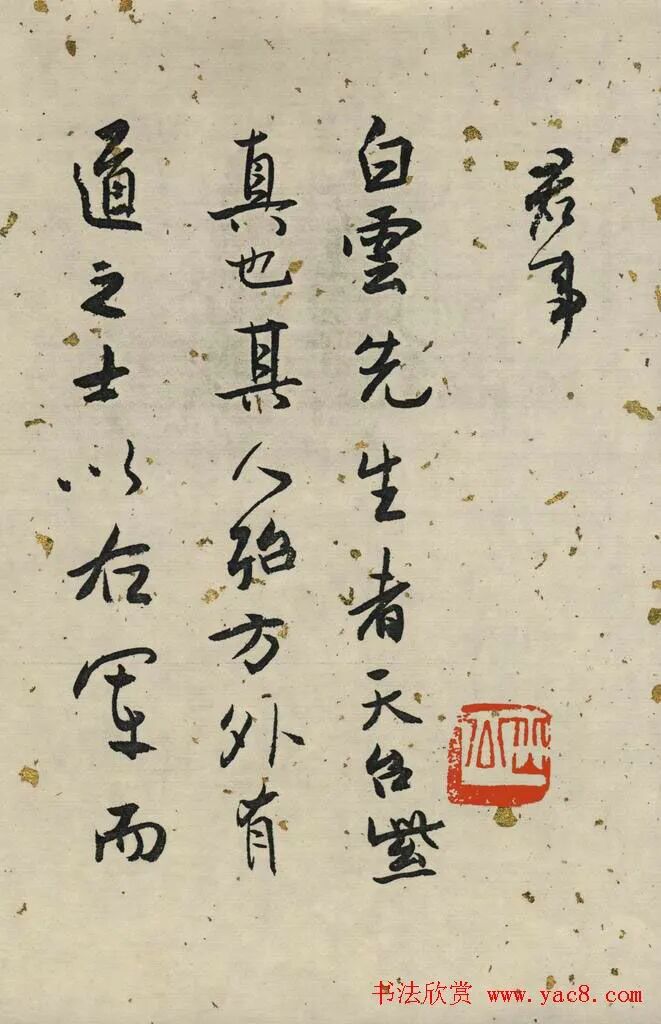 君事
白雲先生者天台紫
真也其人殆方外有
道之士以右軍而
书法欣赏 www.yac8.com